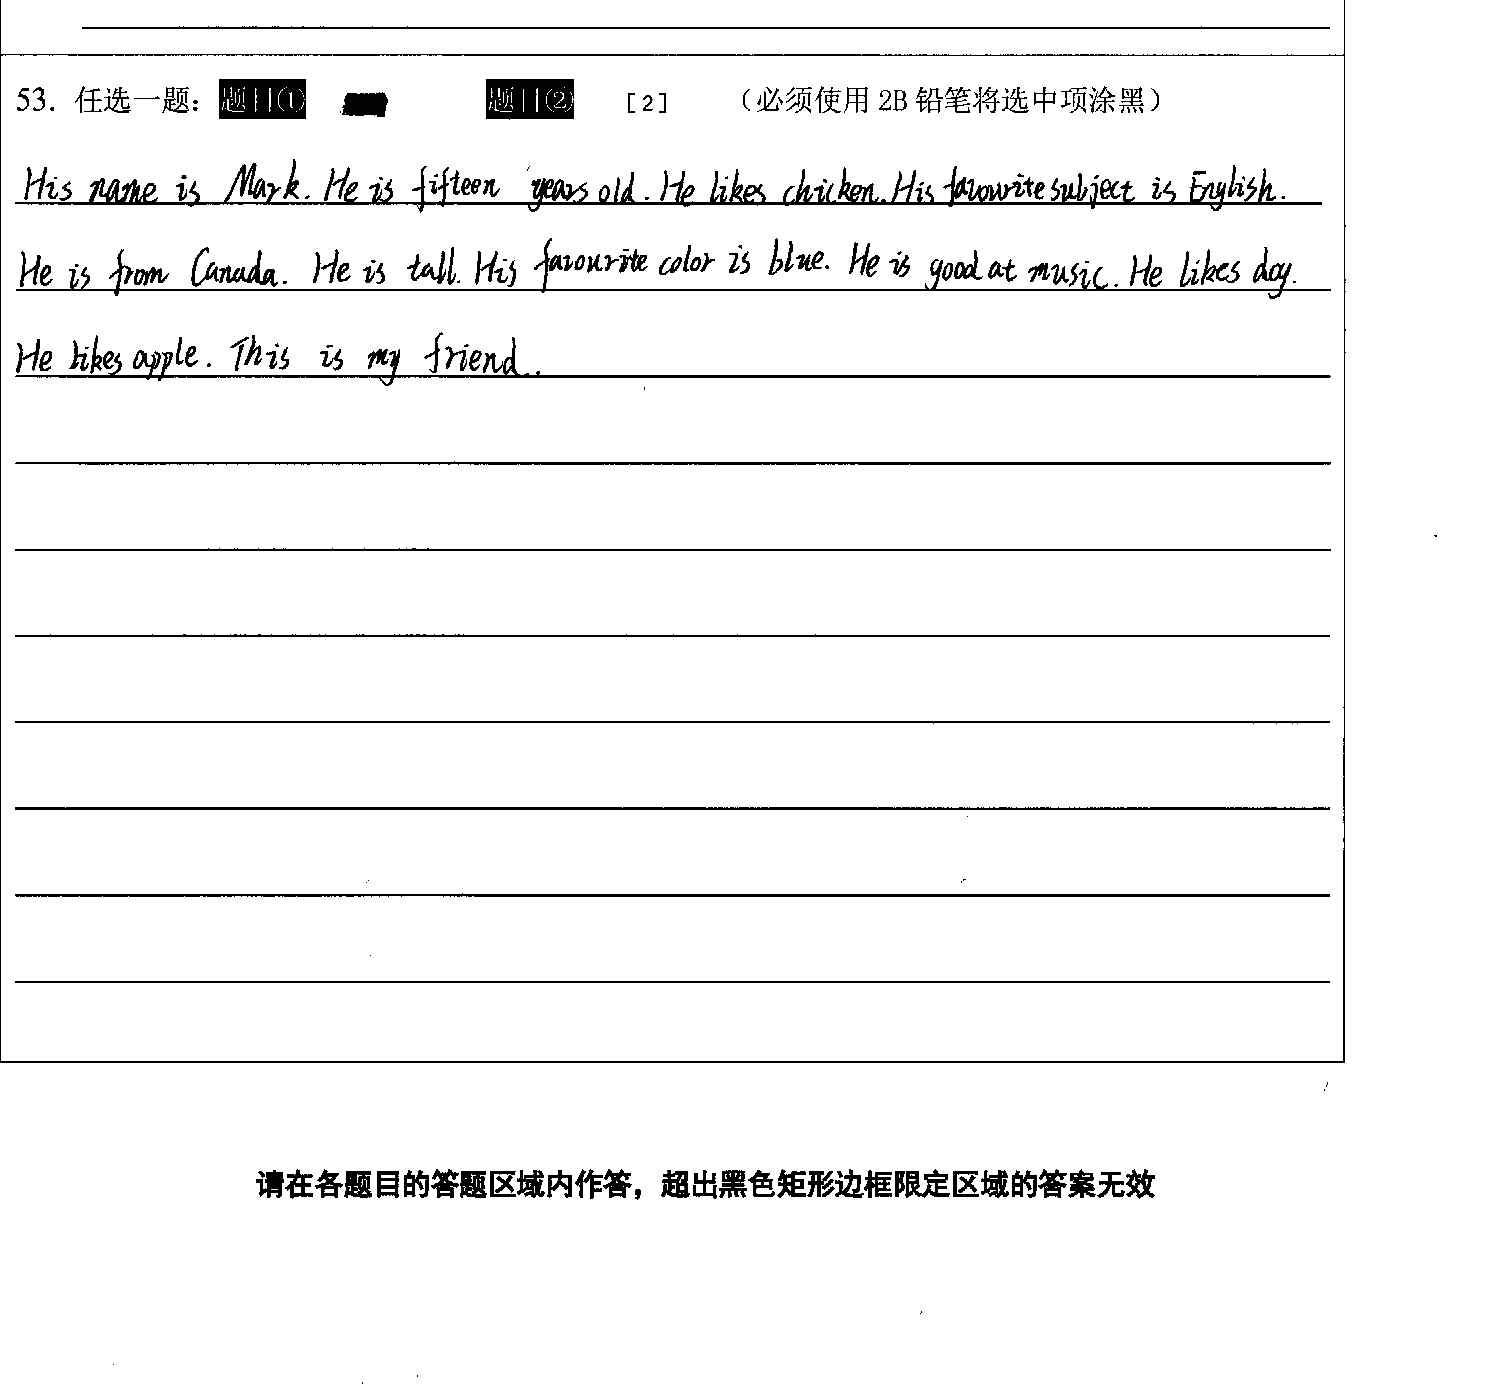 53. 任选一题： 题目① 题目② [2] （必须使用 2B 铅笔将选中项涂黑）
His name is Mark. He is fifteen years old. He likes chicken. His favourite subject is English.
He is from Canada. He is tall. His favourite color is blue. He is good at music. He likes dog.
He likes apple. This is my friend.
请在各题目的答题区域内作答，超出黑色矩形边框限定区域的答案无效